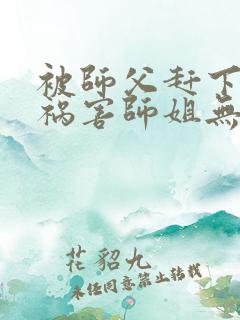 被師父赶下
祸害師姐無
花貂九
未经同意禁止转载